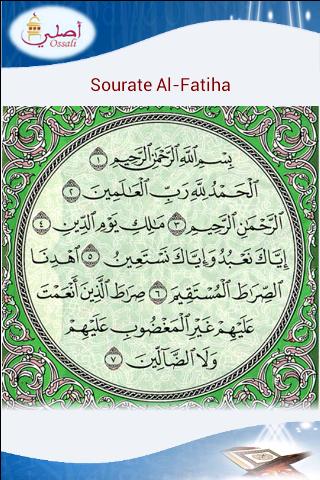 أصلي
Ossali
Sourate Al-Fatiha
بِسْمِ ٱللَّهِ ٱلرَّحْمَٰنِ ٱلرَّحِيمِ ١
ٱلْحَمْدُ لِلَّهِ رَبِّ ٱلْعَٰلَمِينَ ٢
ٱلرَّحْمَٰنِ ٱلرَّحِيمِ ٣ مَٰلِكِ يَوْمِ ٱلدِّينِ ٤
إِيَّاكَ نَعْبُدُ وَإِيَّاكَ نَسْتَعِينُ ٥ ٱهْدِنَا
ٱلصِّرَٰطَ ٱلْمُسْتَقِيمَ ٦ صِرَٰطَ ٱلَّذِينَ أَنْعَمْتَ
عَلَيْهِمْ غَيْرِ ٱلْمَغْضُوبِ عَلَيْهِمْ
وَلَا ٱلضَّآلِّينَ ٧